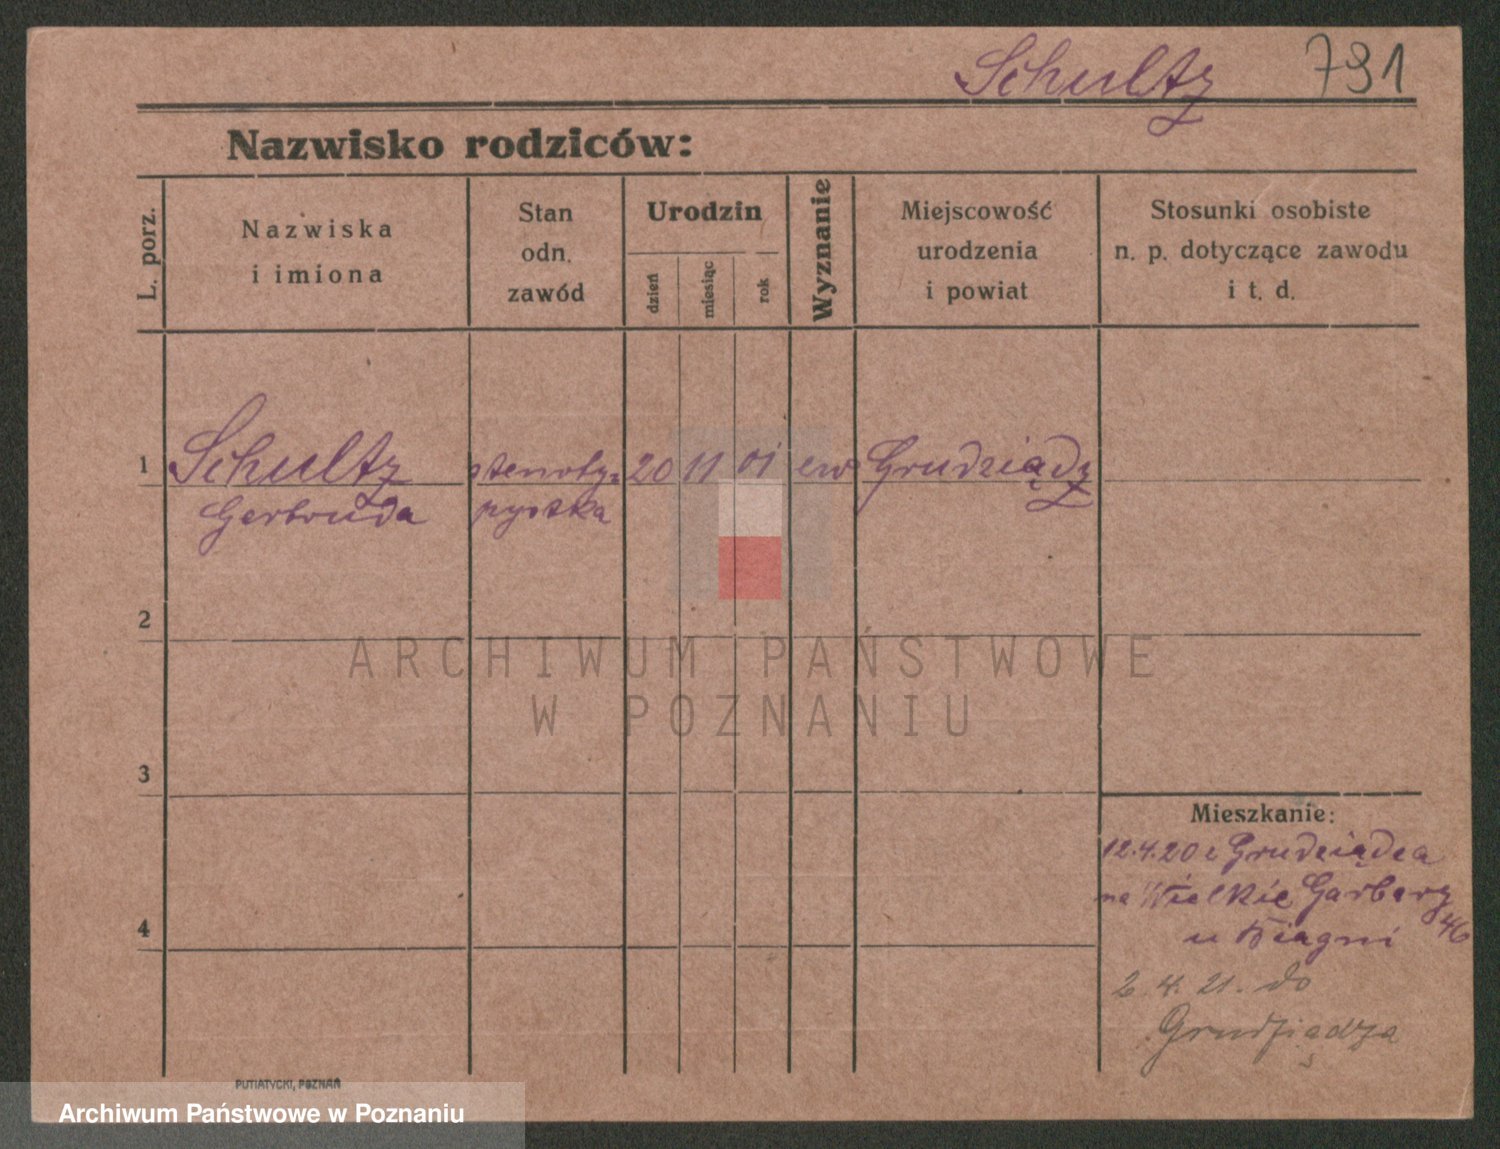 Schultz 791
Nazwisko rodziców:
L. porz.
Nazwiska
i imiona
Stan
odn.
zawód
Urodzin
dzień
miesiąc
rok
Wyznanie
Miejscowość
urodzenia
i powiat
Stosunki osobiste
n. p. dotyczące zawodu
i t. d.
1 Schultz stenoty= 20 11 01 ew Grudziądz
Gertruda pystka
2
3
4
Mieszkanie:
12.4.20 z Grudziądza
na Wielkie Garbary
46
u
2. 4. 21. do
Grudziądza
PUTIATYCKI, POZNAŃ
ARCHIWUM PAŃSTWOWE
W POZNANIU
Archiwum Państwowe w Poznaniu